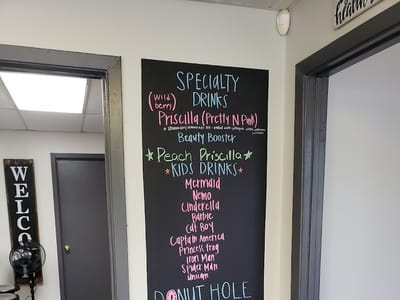 healthy
SPECIALTY
DRINKS
(wild
berry)
Priscilla (Pretty N Pink)
Beauty Booster
Peach Priscilla
KIDS DRINKS
Mermaid
Nemo
Cinderella
Barbie
Cat Boy
Captain America
Princess Frog
Iron Man
Spider Man
unicorn
DONUT HOLE
WELCO